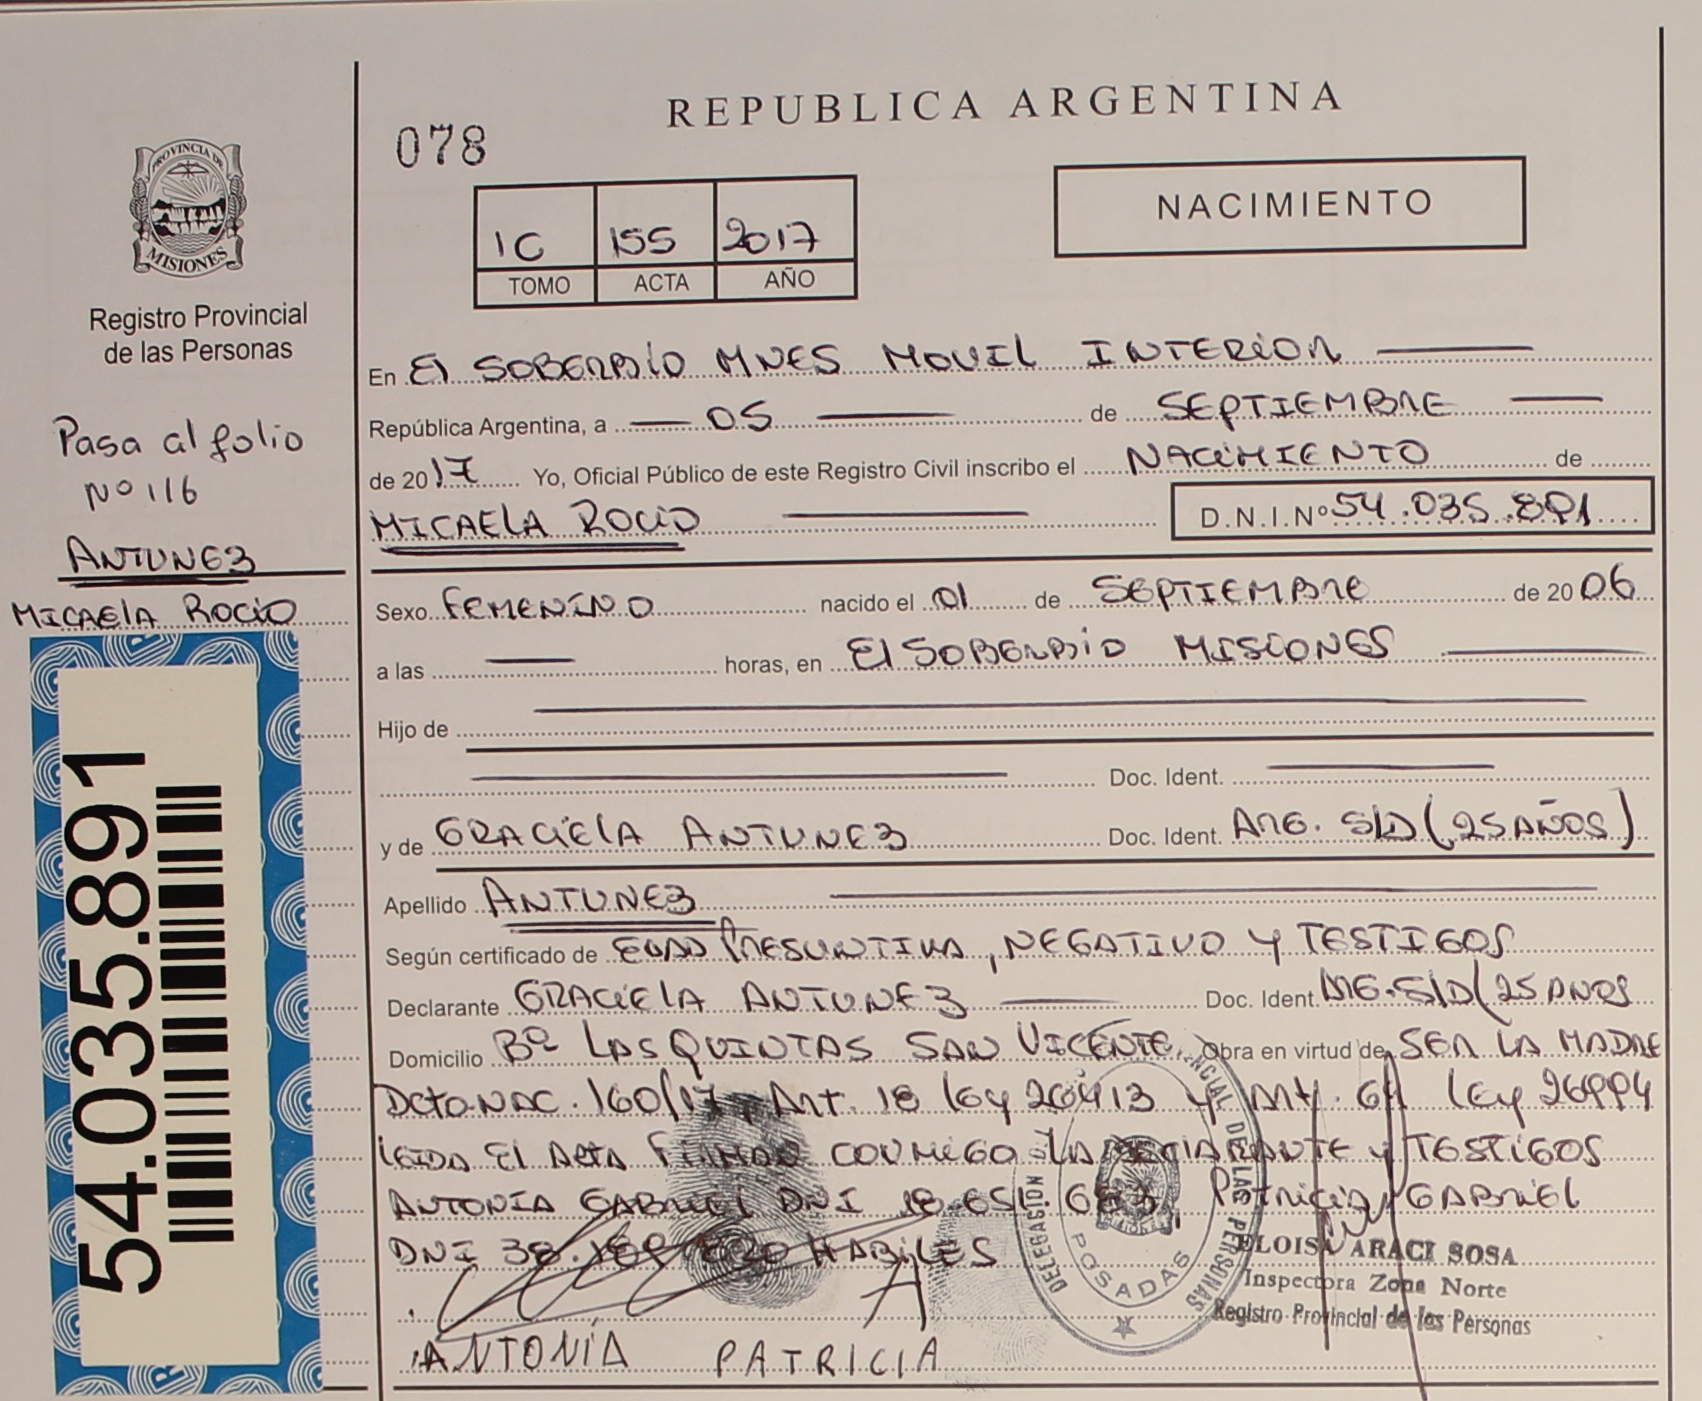 REPUBLICA ARGENTINA
078
PROVINCIA DE
MISIONES
Registro Provincial
de las Personas
NACIMIENTO
1C 155 2017
TOMO ACTA AÑO
En El SOBERBIO MNES MOVIL INTERIOR
República Argentina, a 05 de SEPTIEMBRE
de 2017 Yo, Oficial Público de este Registro Civil inscribo el NACIMIENTO de
MICAELA ROCIO D.N.I.Nº 54.035.891
Pasa al folio
Nº 116
ANTUNEZ
MICAELA ROCIO
54.035.891
Sexo FEMENINO nacido el 01 de SEPTIEMBRE de 2006
a las horas, en El SOBERBIO MISIONES
Hijo de
Doc. Ident.
y de GRACIELA ANTUNEZ Doc. Ident. ARG. S/D (25 AÑOS)
Apellido ANTUNEZ
Según certificado de EDAD PRESUNTIVA, NEGATIVO Y TESTIGOS
Declarante GRACIELA ANTUNEZ Doc. Ident. ARG. S/D (25 AÑOS
Domicilio Bº LAS QUINTAS SAN VICENTE Obra en virtud de SER LA MADRE
Dcto. NAC. 160/17 Art. 18 ley 26413 y Art. ley 26994
LEIDA El ACTA FIRMAN CONMIGO LA DECLARANTE y TESTIGOS
ANTONIA GABRIEL DNI 18. Patricia GABRIEL
DNI 38. HABILES
DELEGACIÓN POSADAS
ELOISA ARACI SOSA
Inspectora Zona Norte
Registro Provincial de las Personas
ANTONIA PATRICIA